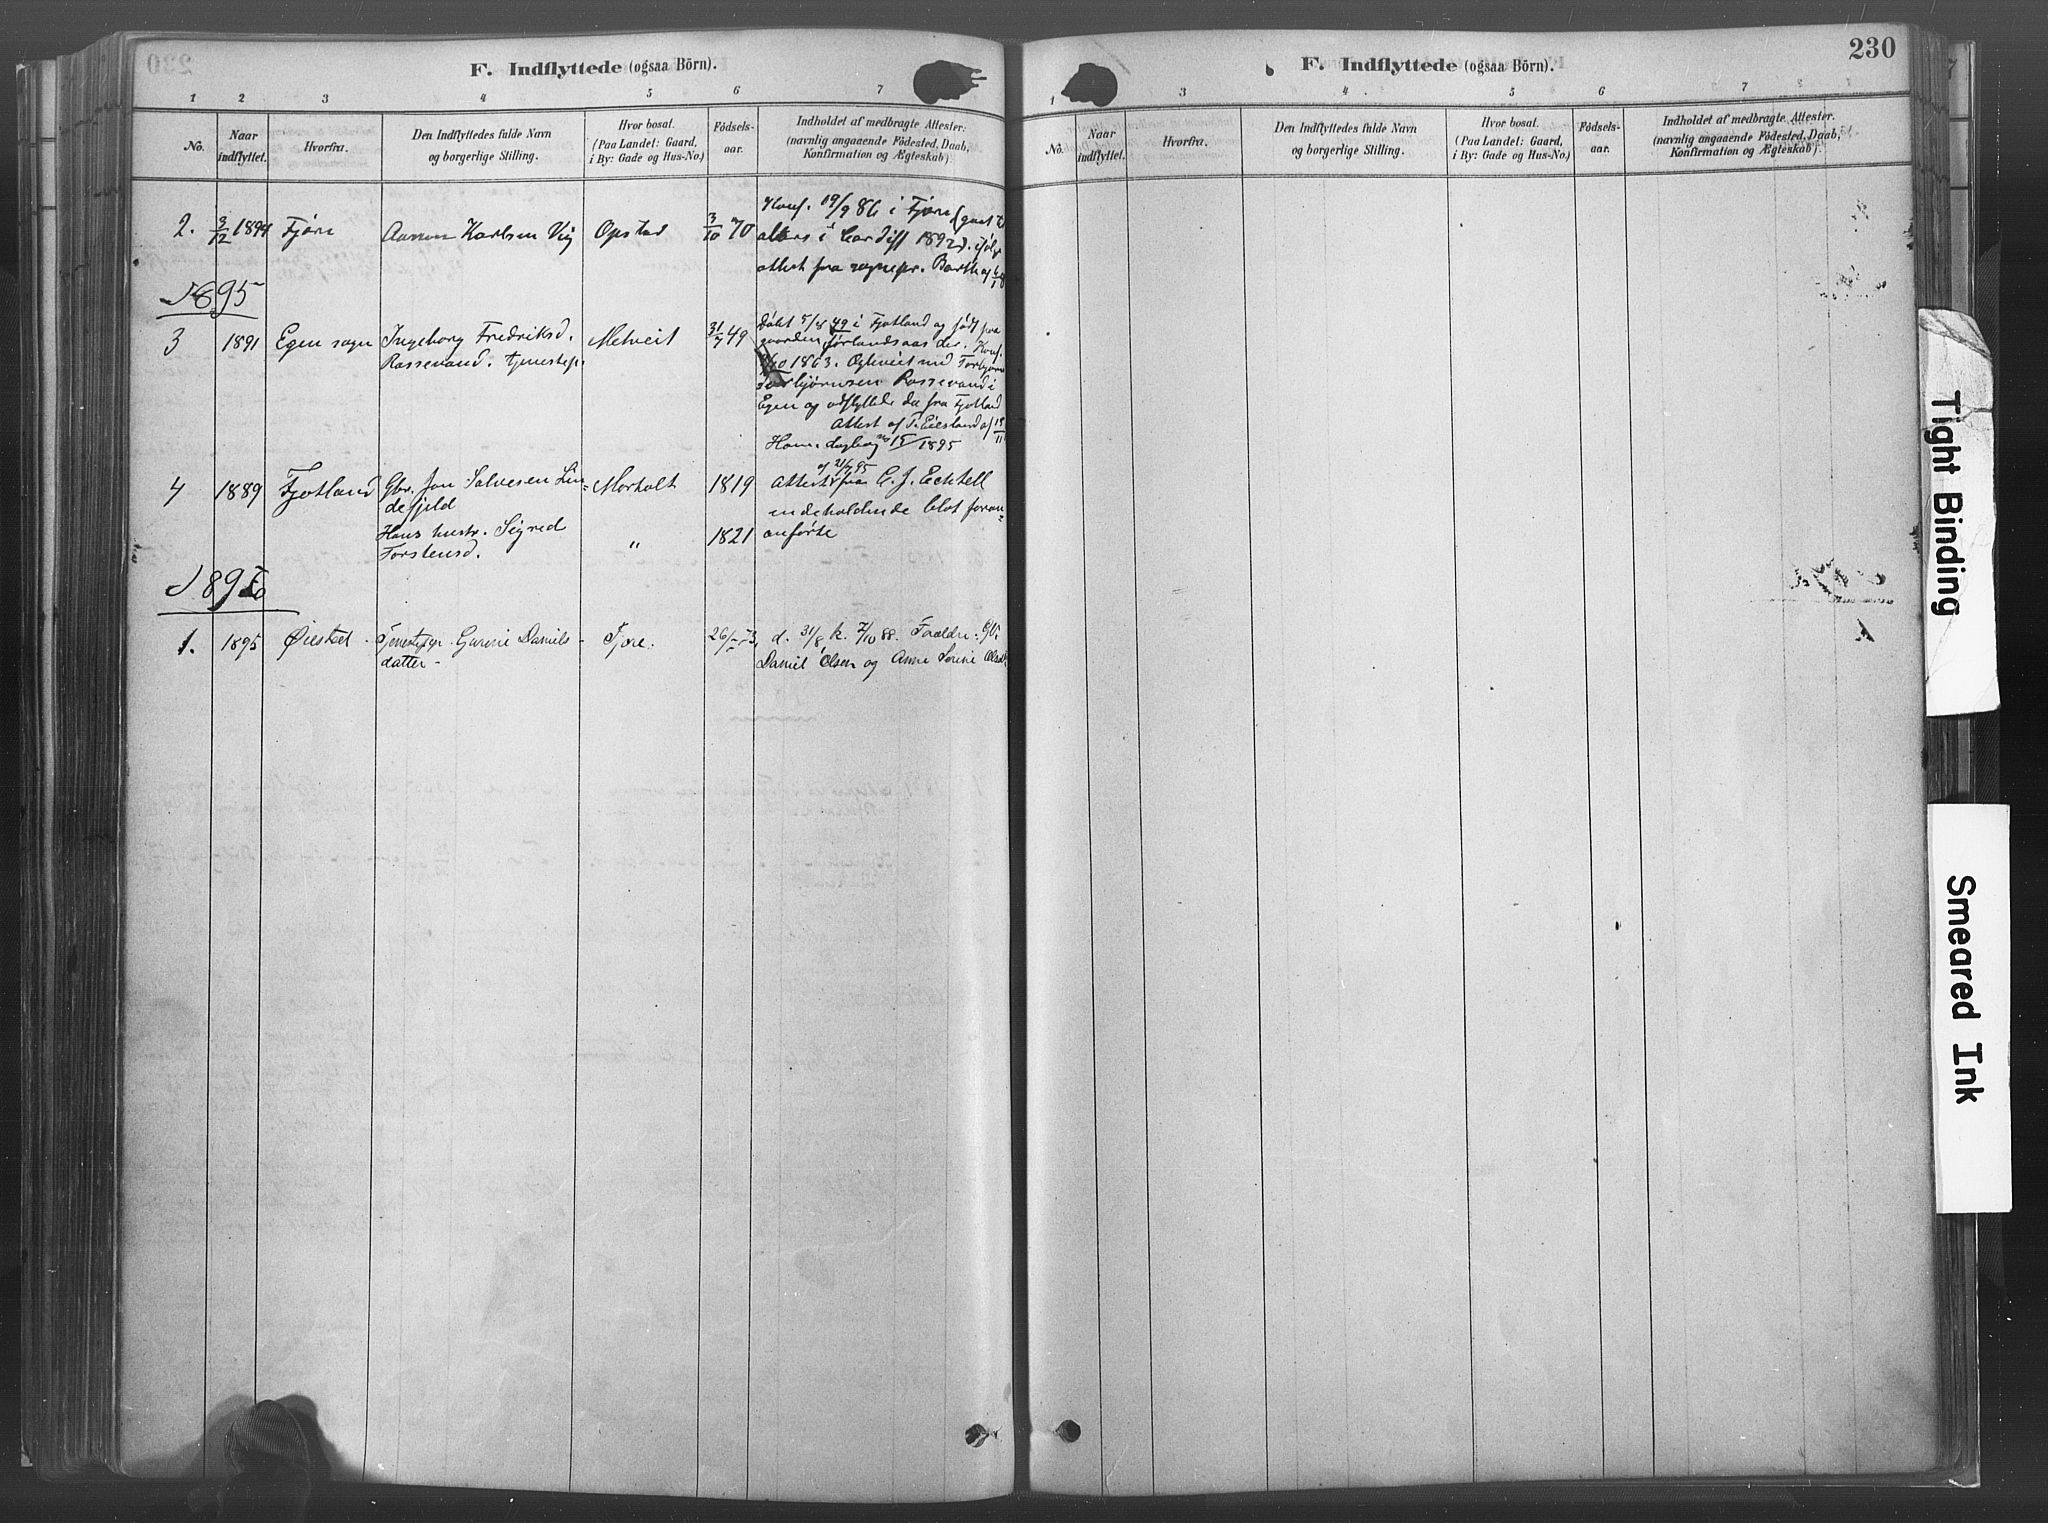 F. Indflyttede (ogsaa Börn).
1 2 3 4 5 6 7
No.
Naar
indflyttet.
Hvorfra.
Den Indflyttedes fulde Navn
og borgerlige Stilling.
Hvor bosat.
(Paa Landet: Gaard,
i By: Gade og Hus-No.)
Födsels-
aar.
Indholdet af medbragte Attester:
(navnlig angaaende Födested, Daab,
Konfirmation og Ægteskab)
2. 3/12 1894 Fjære Karlsen Vig Opstad 3/10 70
Konf. 19/9 86 i Fjære (gaat t
alters i Cardiff 1892). ifølge
attest fra sognepr. Barth af
1895
3 1891 Egen sogn Ingeborg Fredriksd.
Rossevand. tjenestep. Metveit 31/7 49
Døbt 5/8 49 i Fjotland og født paa
gaarden der. Konf.
1863. med Torbjørn
Torbjørnsen Rossevand i
Egen og udflyttede da fra Fjotland
Attest af T. Eiesland af
1895
4 1889 Fjotland Gbr. Jon Salvesen Lin=
defjeld Morholt 1819
af 21/7 95
Attest fra
indeholdende blot foran=
Hans hustr. Sigred
Torstensd. " 1821 anførte
1896
1. 1895 Øiestad - Tjenestepge. Gurine Daniels-
datter - Fjære. 26/7 73.
d. 31/8, k. 2/10 88. Forældre: Gbr.
Daniel Olsen og Anne Serine Olsd.
F. Indflyttede (ogsaa Börn).
230
1 3 4 5 6 7
No.
Naar
indflyttet.
Hvorfra.
Den Indflyttedes fulde Navn
og borgerlige Stilling.
Hvor bosat.
(Paa Landet: Gaard,
i By: Gade og Hus-No.)
Födsels-
aar.
Indholdet af medbragte Attester.
(navnlig angaaende Födested, Daab,
Konfirmation og Ægteskab).
Tight Binding
Smeared Ink